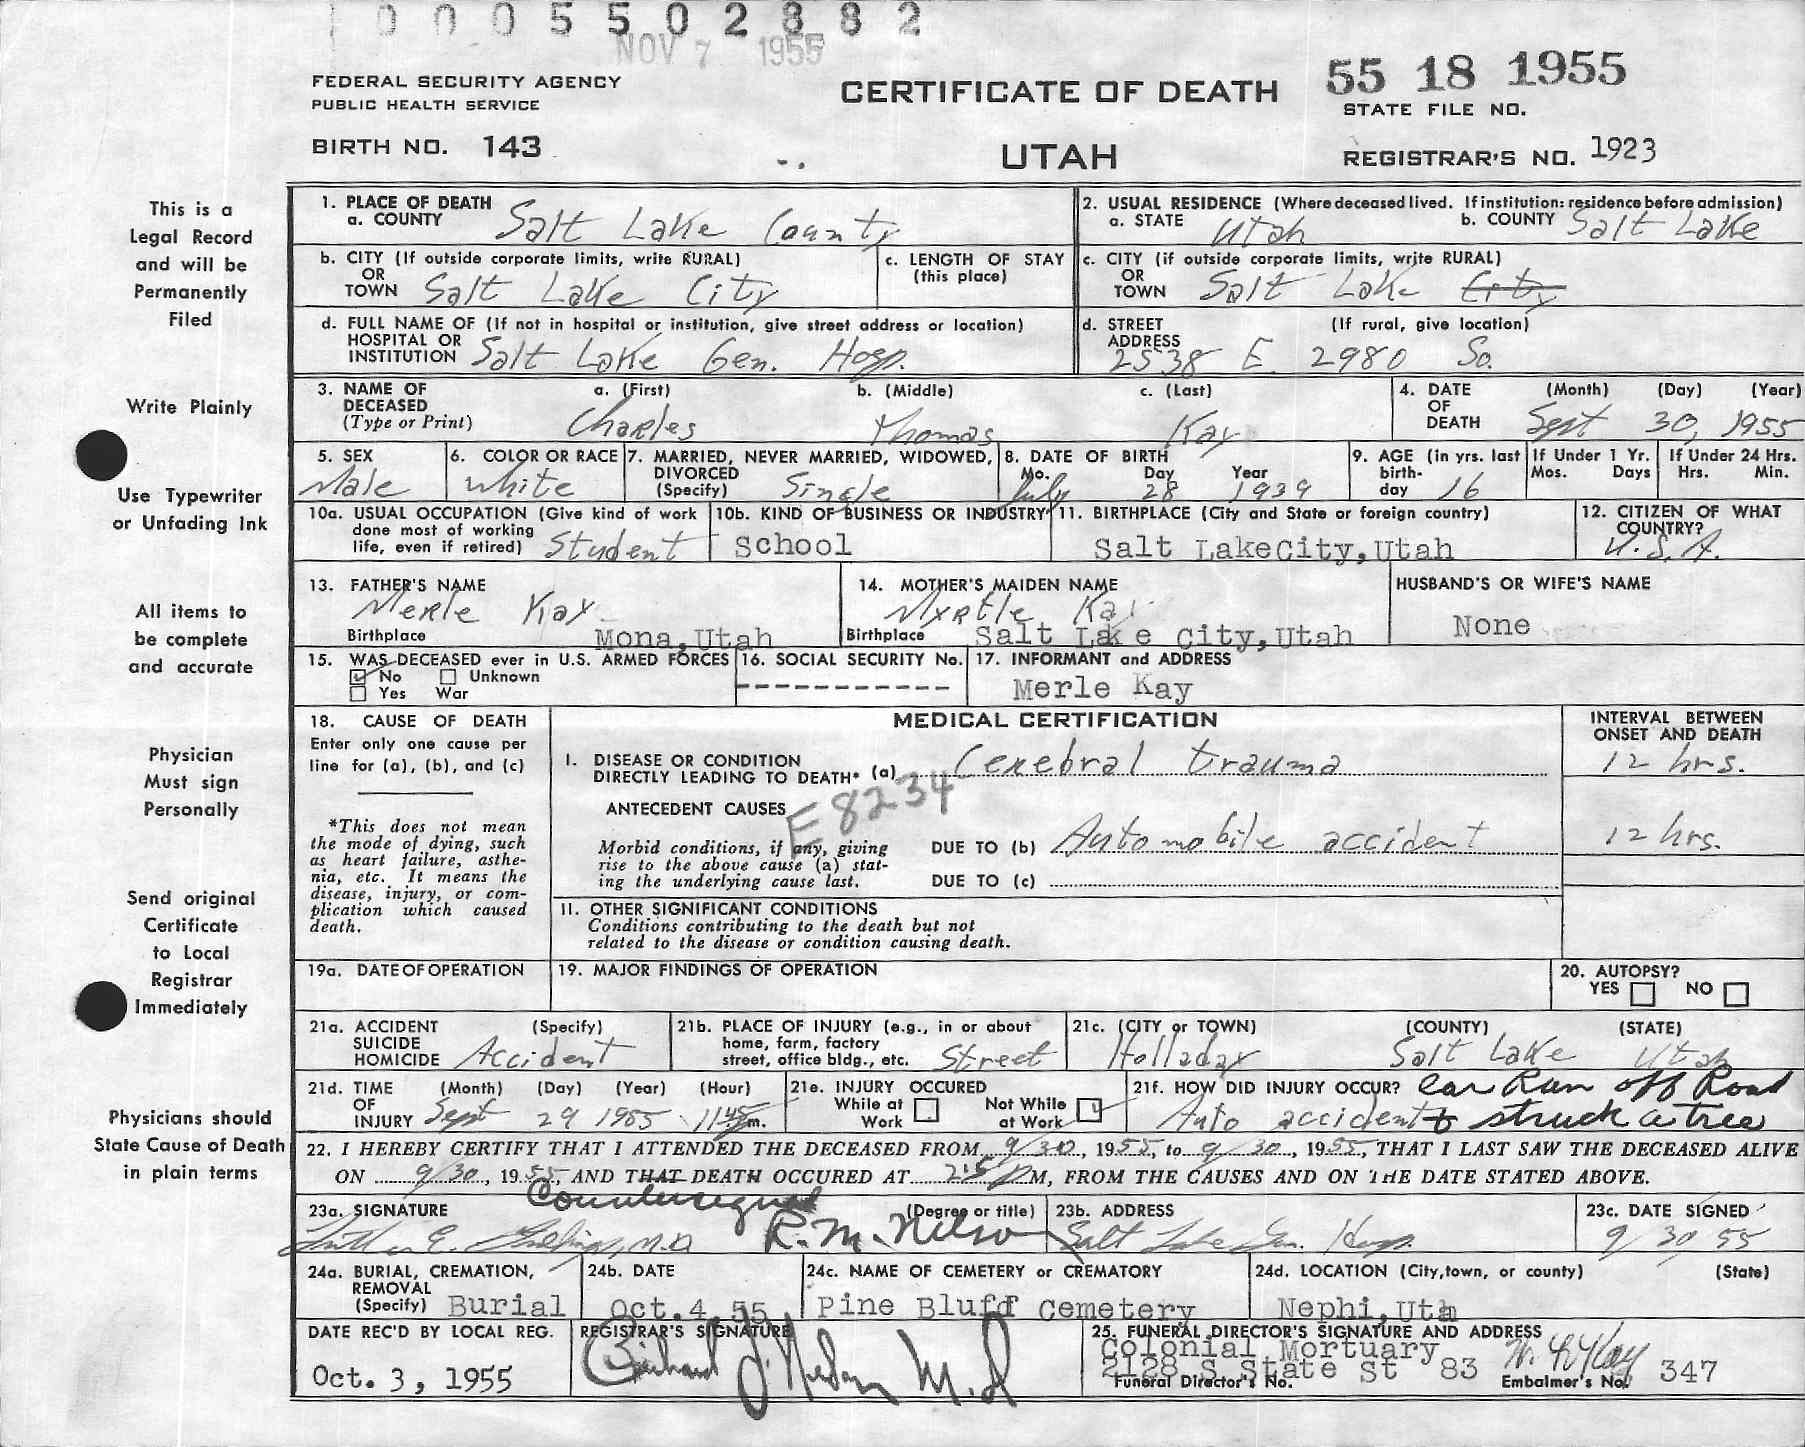 0005502882
NOV 7 1955
FEDERAL SECURITY AGENCY
PUBLIC HEALTH SERVICE
BIRTH NO. 143
CERTIFICATE OF DEATH
UTAH
55 18 1955
STATE FILE NO.
REGISTRAR'S NO. 1923
This is a
Legal Record
and will be
Permanently
Filed
Write Plainly
Use Typewriter
or Unfading Ink
All items to
be complete
and accurate
Physician
Must sign
Personally
Send original
Certificate
to Local
Registrar
Immediately
Physicians should
State Cause of Death
in plain terms
1. PLACE OF DEATH
a. COUNTY Salt Lake County
2. USUAL RESIDENCE (Where deceased lived. If institution: residence before admission)
a. STATE Utah b. COUNTY Salt Lake
b. CITY (If outside corporate limits, write RURAL)
OR
TOWN Salt Lake City
c. LENGTH OF STAY
(this place)
c. CITY (if outside corporate limits, write RURAL)
OR
TOWN Salt Lake City
d. FULL NAME OF (If not in hospital or institution, give street address or location)
HOSPITAL OR
INSTITUTION Salt Lake Gen. Hosp.
d. STREET (If rural, give location)
ADDRESS
2538 E. 2980 So.
3. NAME OF a. (First) b. (Middle) c. (Last)
DECEASED
(Type or Print) Charles Thomas Kay
4. DATE (Month) (Day) (Year)
OF
DEATH Sept 30, 1955
5. SEX
Male
6. COLOR OR RACE
White
7. MARRIED, NEVER MARRIED, WIDOWED,
DIVORCED
(Specify) Single
8. DATE OF BIRTH
Mo. Day Year
July 28 1939
9. AGE (in yrs. last
birth-
day 16
If Under 1 Yr.
Mos. Days
If Under 24 Hrs.
Hrs. Min.
10a. USUAL OCCUPATION (Give kind of work
done most of working
life, even if retired) Student
10b. KIND OF BUSINESS OR INDUSTRY
School
11. BIRTHPLACE (City and State or foreign country)
Salt LakeCity,Utah
12. CITIZEN OF WHAT
COUNTRY?
U.S.A.
13. FATHER'S NAME
Merle Kay
Birthplace Mona,Utah
14. MOTHER'S MAIDEN NAME
Myrtle Kay
Birthplace Salt Lake City,Utah
HUSBAND'S OR WIFE'S NAME
None
15. WAS DECEASED ever in U.S. ARMED FORCES
No Unknown
Yes War
16. SOCIAL SECURITY No.
-------------
17. INFORMANT and ADDRESS
Merle Kay
18. CAUSE OF DEATH
Enter only one cause per
line for (a), (b), and (c)
*This does not mean
the mode of dying, such
as heart failure, asthe-
nia, etc. It means the
disease, injury, or com-
plication which caused
death.
MEDICAL CERTIFICATION
I. DISEASE OR CONDITION
DIRECTLY LEADING TO DEATH* (a) Cerebral trauma
ANTECEDENT CAUSES
E8234
Morbid conditions, if any, giving
rise to the above cause (a) stat-
ing the underlying cause last.
DUE TO (b) Automobile accident
DUE TO (c)
INTERVAL BETWEEN
ONSET AND DEATH
12 hrs.
12 hrs.
II. OTHER SIGNIFICANT CONDITIONS
Conditions contributing to the death but not
related to the disease or condition causing death.
19a. DATE OF OPERATION
19. MAJOR FINDINGS OF OPERATION
20. AUTOPSY?
YES NO
21a. ACCIDENT (Specify)
SUICIDE
HOMICIDE Accident
21b. PLACE OF INJURY (e.g., in or about
home, farm, factory
street, office bldg., etc. Street
21c. (CITY or TOWN) (COUNTY) (STATE)
Holladay Salt Lake Utah
21d. TIME (Month) (Day) (Year) (Hour)
OF
INJURY Sept 29 1955 1145 m.
21e. INJURY OCCURED
While at Not While
Work at Work
21f. HOW DID INJURY OCCUR? Car Run off Road
Auto accident & struck a tree
22. I HEREBY CERTIFY THAT I ATTENDED THE DECEASED FROM 9/30, 1955, to 9/30, 1955, THAT I LAST SAW THE DECEASED ALIVE
ON 9/30, 1955, AND THAT DEATH OCCURED AT M, FROM THE CAUSES AND ON THE DATE STATED ABOVE.
23a. SIGNATURE Countersigned (Degree or title)
Luther E. M.D R. M. Nelson
23b. ADDRESS
Salt Lake Gen. Hosp.
23c. DATE SIGNED
9/30/55
24a. BURIAL, CREMATION,
REMOVAL
(Specify) Burial
24b. DATE
Oct.4 55
24c. NAME OF CEMETERY or CREMATORY
Pine Bluff Cemetery
24d. LOCATION (City, town, or county) (State)
Nephi,Utah
DATE REC'D BY LOCAL REG.
Oct. 3, 1955
REGISTRAR'S SIGNATURE
M.D
25. FUNERAL DIRECTOR'S SIGNATURE AND ADDRESS
Colonial Mortuary
2128 S. State St 83 347
Funeral Director's No. Embalmer's No.